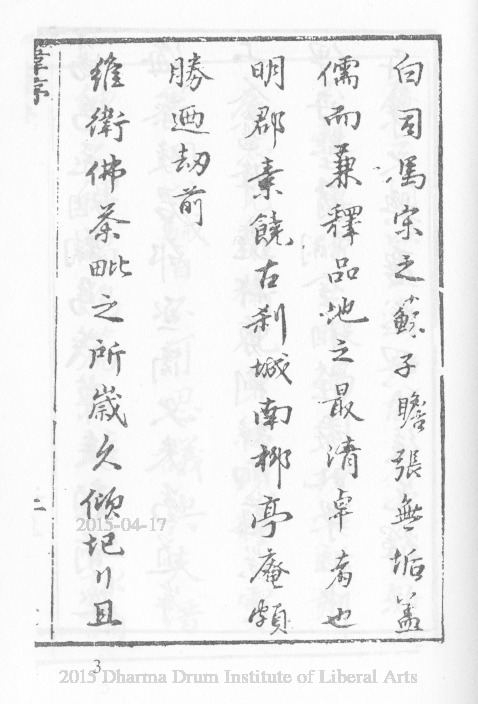 白司馮宋之蘇子瞻張無垢蓋
儒而兼釋品地之最清卓者也
明郡素饒古刹城南柳亭庵頗
勝迺劫前
維衛佛茶毗之所歲久傾圮且
序
2015-04-17
3
2015 Dharma Drum Institute of Liberal Arts